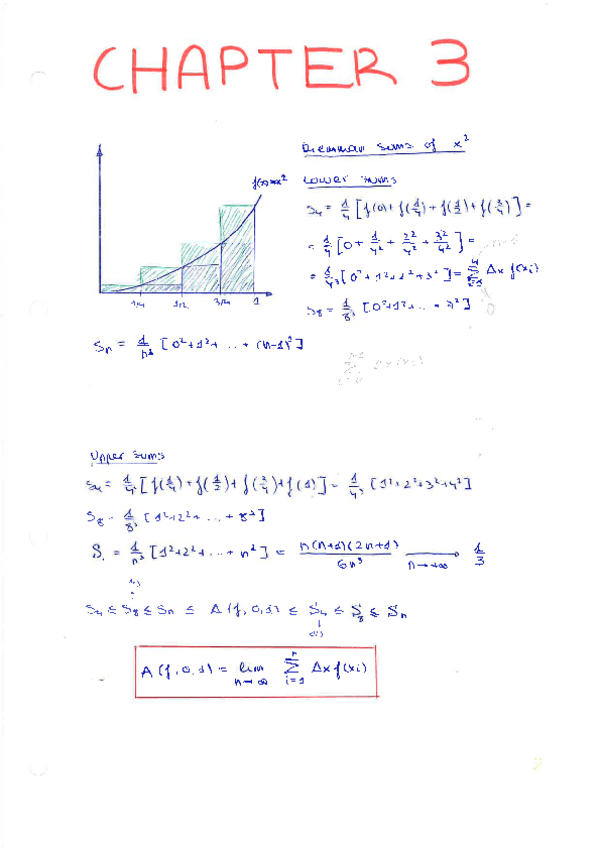 CHAPTER 3
Riemman sums of x²
f(x)=x²
1/4 1/2 3/4 1
Lower sums
S₄ = 1/4 [f(0)+f(1/4)+f(1/2)+f(3/4)] =
= 1/4 [0 + 1/4² + 2²/4² + 3²/4²] =
= 1/4³ [0²+1²+2²+3²] = Σ Δx f(xi)
S₈ = 1/8³ [0²+1²+ ... + 7²]
Sₙ = 1/n³ [0²+1²+ ... + (n-1)²]
Upper sums
S₄ = 1/4 [f(1/4)+f(1/2)+f(3/4)+f(1)] = 1/4³ [1²+2²+3²+4²]
S₈ = 1/8³ [1²+2²+ ... + 8²]
S. = 1/n³ [1²+2²+ ... + n²] = n(n+1)(2n+1)/6n³ → n→+∞ 1/3
S₄ ≤ S₈ ≤ Sₙ ≤ A(f,0,1) ≤ S₄ ≤ S₈ ≤ Sₙ
A(f,0,1) = lim n→∞ Σ i=1 n Δx f(xi)